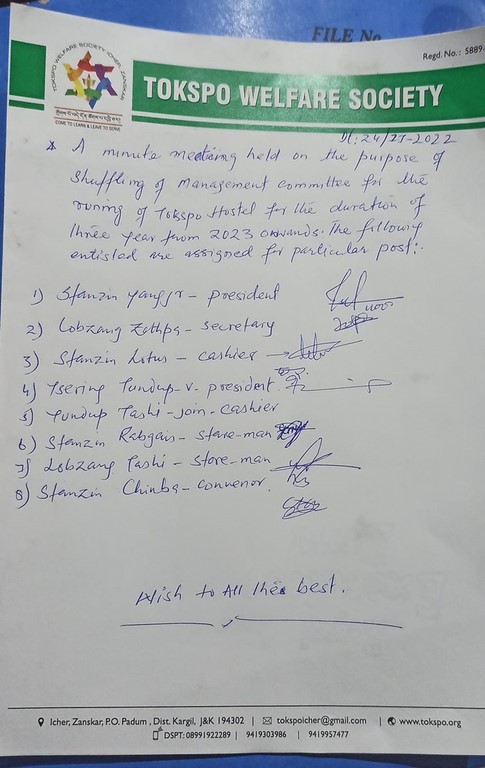 FILE No
Regd. No. : 5889-
TOKSPO WELFARE SOCIETY ICHER, ZANSKAR
COME TO LEARN & LEAVE TO SERVE
TOKSPO WELFARE SOCIETY
A minute meeting held on the purpose of
Shuffling of management committee for the
runing of Tokspo Hostel for the duration of
three year from 2023 onwards. The following
are assigned for particular post:-
1) Stanzin yangjr - president
2) Lobzang Zothpa - secretary
3) Stanzin Lotus - cashier
4) Tsering Tundup - v. president
5) Tundup Tashi - join - cashier
6) Stanzin Rabgais - store-man
7) Lobzang Tashi - store-man
8) Stanzin Chinba - convenor.
Wish to All the best.
Icher, Zanskar, P.O. Padum , Dist. Kargil, J&K 194302 | tokspoicher@gmail.com | www.tokspo.org
DSPT: 08991922289 | 9419303986 | 9419957477